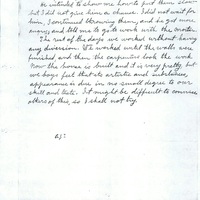 He intended to show me how to put them slow-
but I did not give him a chance. I did not wait for
him, I continued throwing them, and he got more
angry and told me to go to work with the mortar.
The rest of the days we worked without having
any diversion. We worked until the walls were
finished and then the carpenters took the work
Now the house is built and it is very pretty but
we boys feel that its artistic and substantial
appearance is due in no small degree to our
skill and taste. It might be difficult to convince
others of this, so I shall not try.